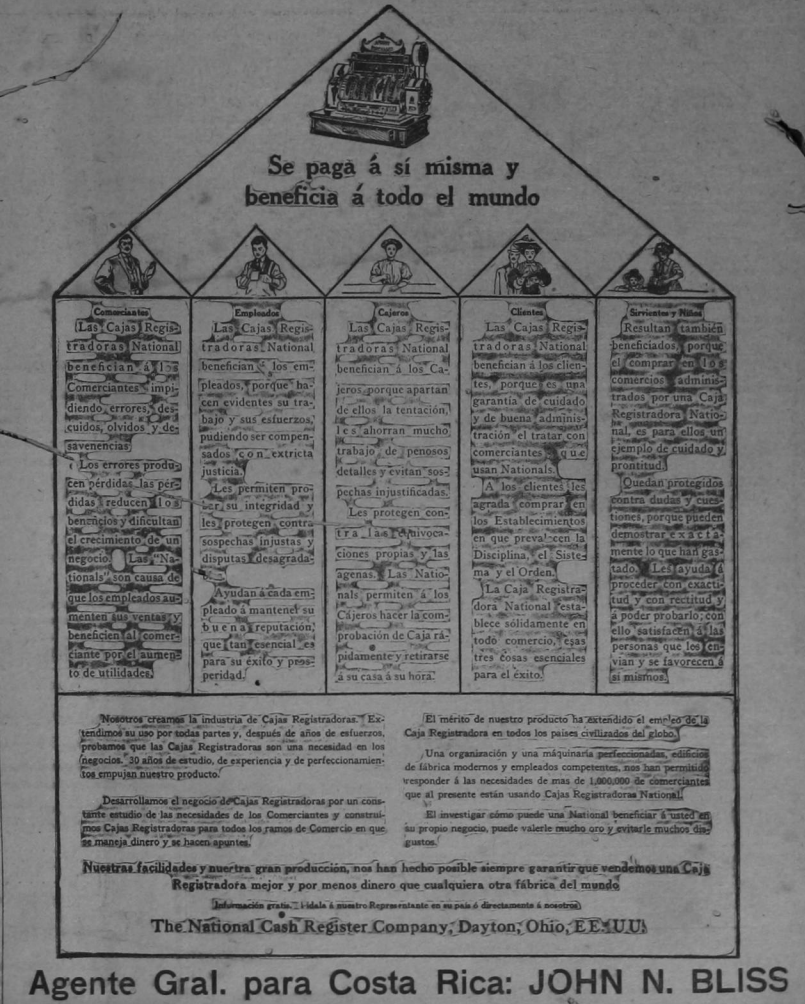 Se paga á sí misma y
beneficia á todo el mundo
Comerciantes
Las Cajas Regis-
tradoras National
benefician á los
Comerciantes impi-
diendo, errores, des-
cuidos, olvidos y de-
savenencias
Los errores produ-
cen pérdidas, las pér-
didas reducen los
beneficios y dificultan
el crecimiento de un
negocio. Las "Na-
tionals" son causa de
que los empleados au-
menten sus ventas y
beneficien al comer-
ciante por el aumen-
to de utilidades.
Empleados
Las Cajas Regis-
tradoras National
benefician á los em-
pleados, porque ha-
cen evidentes su tra-
bajo y sus esfuerzos,
pudiendo ser compen-
sados con extricta
justicia.
Les permiten pro-
bar su integridad y
les protegen contra
sospechas injustas y
disputas desagrada-
Ayudan á cada em-
pleado á mantener su
buena reputación,
que tan esencial es
para su éxito y pros-
peridad.
Cajeros
Las Cajas Regis-
tradoras National
benefician á los Ca-
jeros porque apartan
de ellos la tentación,
les ahorran mucho
trabajo de penosos
detalles y evitan sos-
pechas injustificadas.
Les protegen con-
tra las equivoca-
ciones propias y las
agenas. Las Natio-
nals permiten á los
Cájeros hacer la com-
probación de Caja rá-
pidamente y retirarse
á su casa á su hora.
Clientes
Las Cajas Regis-
tradoras National
benefician á los clien-
tes, porque es una
garantía de cuidado
y de buena adminis-
tración el tratar con
comerciantes que
usan Nationals.
A los clientes les
agrada comprar en
los Establecimientos
en que prevalecen la
Disciplina, el Siste-
ma y el Orden.
La Caja Registra-
dora National esta-
blece sólidamente en
todo comercio, esas
tres cosas esenciales
para el éxito.
Sirvientes y Niños
Resultan también
beneficiados, porque
el comprar en los
comercios adminis-
trados por una Caja
Registradora Natio-
nal, es para ellos un
ejemplo de cuidado y
prontitud.
Quedan protegidos
contra dudas y cues-
tiones, porque pueden
demostrar exacta-
mente lo que han gas-
tado. Les ayuda á
proceder con exacti-
tud y con rectitud y
á poder probarlo; con
ello satisfacen á las
personas que los en-
vían y se favorecen á
si mismos.
Nosotros creamos la industria de Cajas Registradoras. Ex-
tendimos su uso por todas partes y, después de años de esfuerzos,
probamos que las Cajas Registradoras son una necesidad en los
negocios. 30 años de estudio, de experiencia y de perfeccionamien-
tos empujan nuestro producto.
Desarrollamos el negocio de Cajas Registradoras por un cons-
tante estudio de las necesidades de los Comerciantes y construi-
mos Cajas Registradoras para todos los ramos de Comercio en que
se maneja dinero y se hacen apuntes.
El mérito de nuestro producto ha extendido el empleo de la
Caja Registradora en todos los paises civilizados del globo.
Una organización y una máquinaria perfeccionadas, edificios
de fábrica modernos y empleados competentes, nos han permitido
responder á las necesidades de mas de 1,000,000 de comerciantes
que al presente están usando Cajas Registradoras National.
El investigar cómo puede una National beneficiar á usted en
su propio negocio, puede valerle mucho oro y evitarle muchos dis-
gustos.
Nuestras facilidades y nuertra gran producción, nos han hecho posible siempre garantir que vendemos una Caja
Registradora mejor y por menos dinero que cualquiera otra fábrica del mundo
Información gratis. Pidala á nuestro Representante en su país ó directamente á nosotros
The National Cash Register Company, Dayton, Ohio, EE. U.U.
Agente Gral. para Costa Rica: JOHN N. BLISS